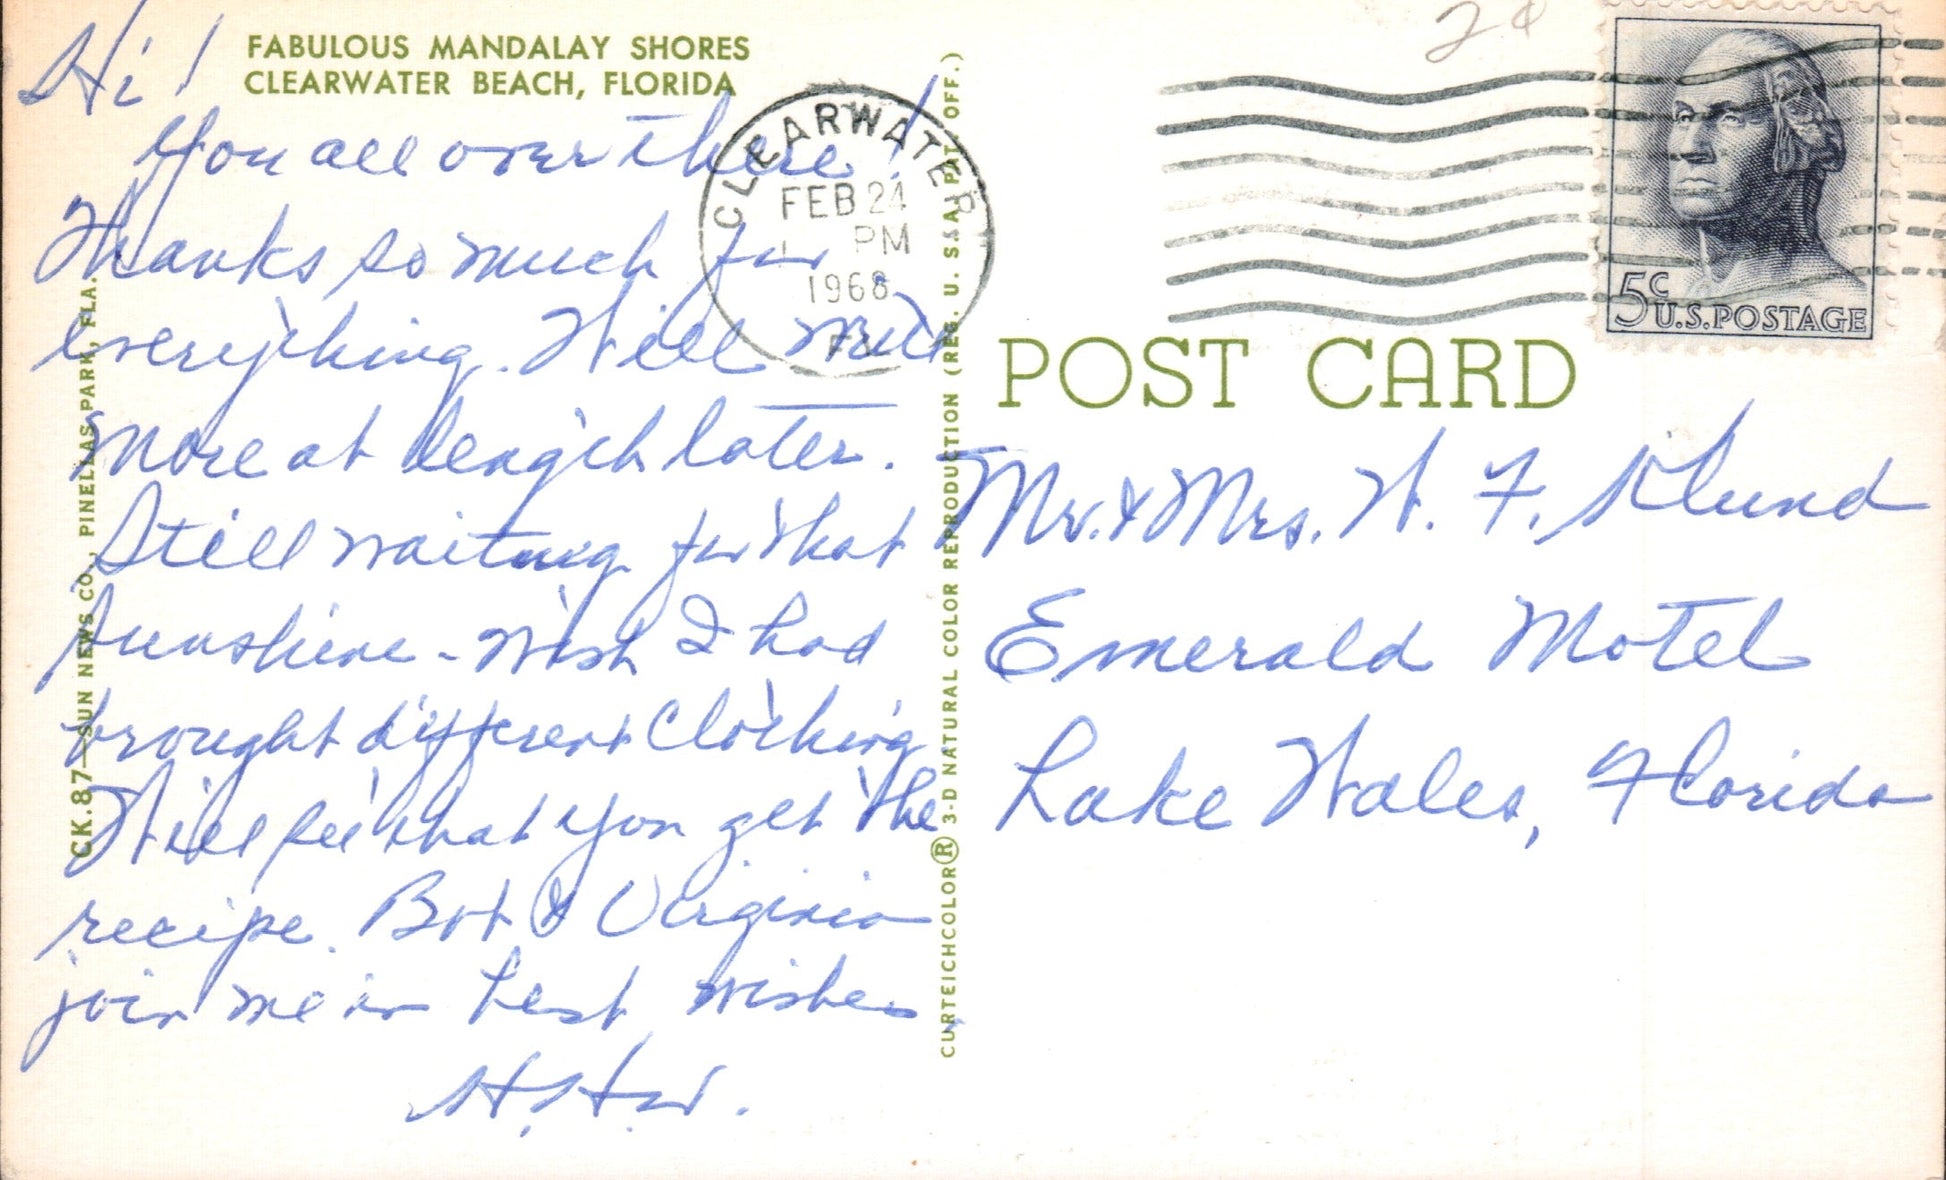 Hi!
FABULOUS MANDALAY SHORES
CLEARWATER BEACH, FLORIDA
You all over there!
Thanks so much for
everything. Will write
more at length later.
Still waiting for that
sunshine - wish I had
brought different clothing
Will see that you get the
recipe. Bob & Virginia
join me in best wishes.
CK.87—SUN NEWS CO., PINELLAS PARK, FLA.
CURTEICHCOLOR® 3-D NATURAL COLOR REPRODUCTION (REG. U. S.A. PAT. OFF.)
CLEARWATER
FEB 24
PM
1968
FL
2¢
5c
U.S. POSTAGE
POST CARD
Mr. & Mrs. W. F. Klund
Emerald Motel
Lake Wales, Florida